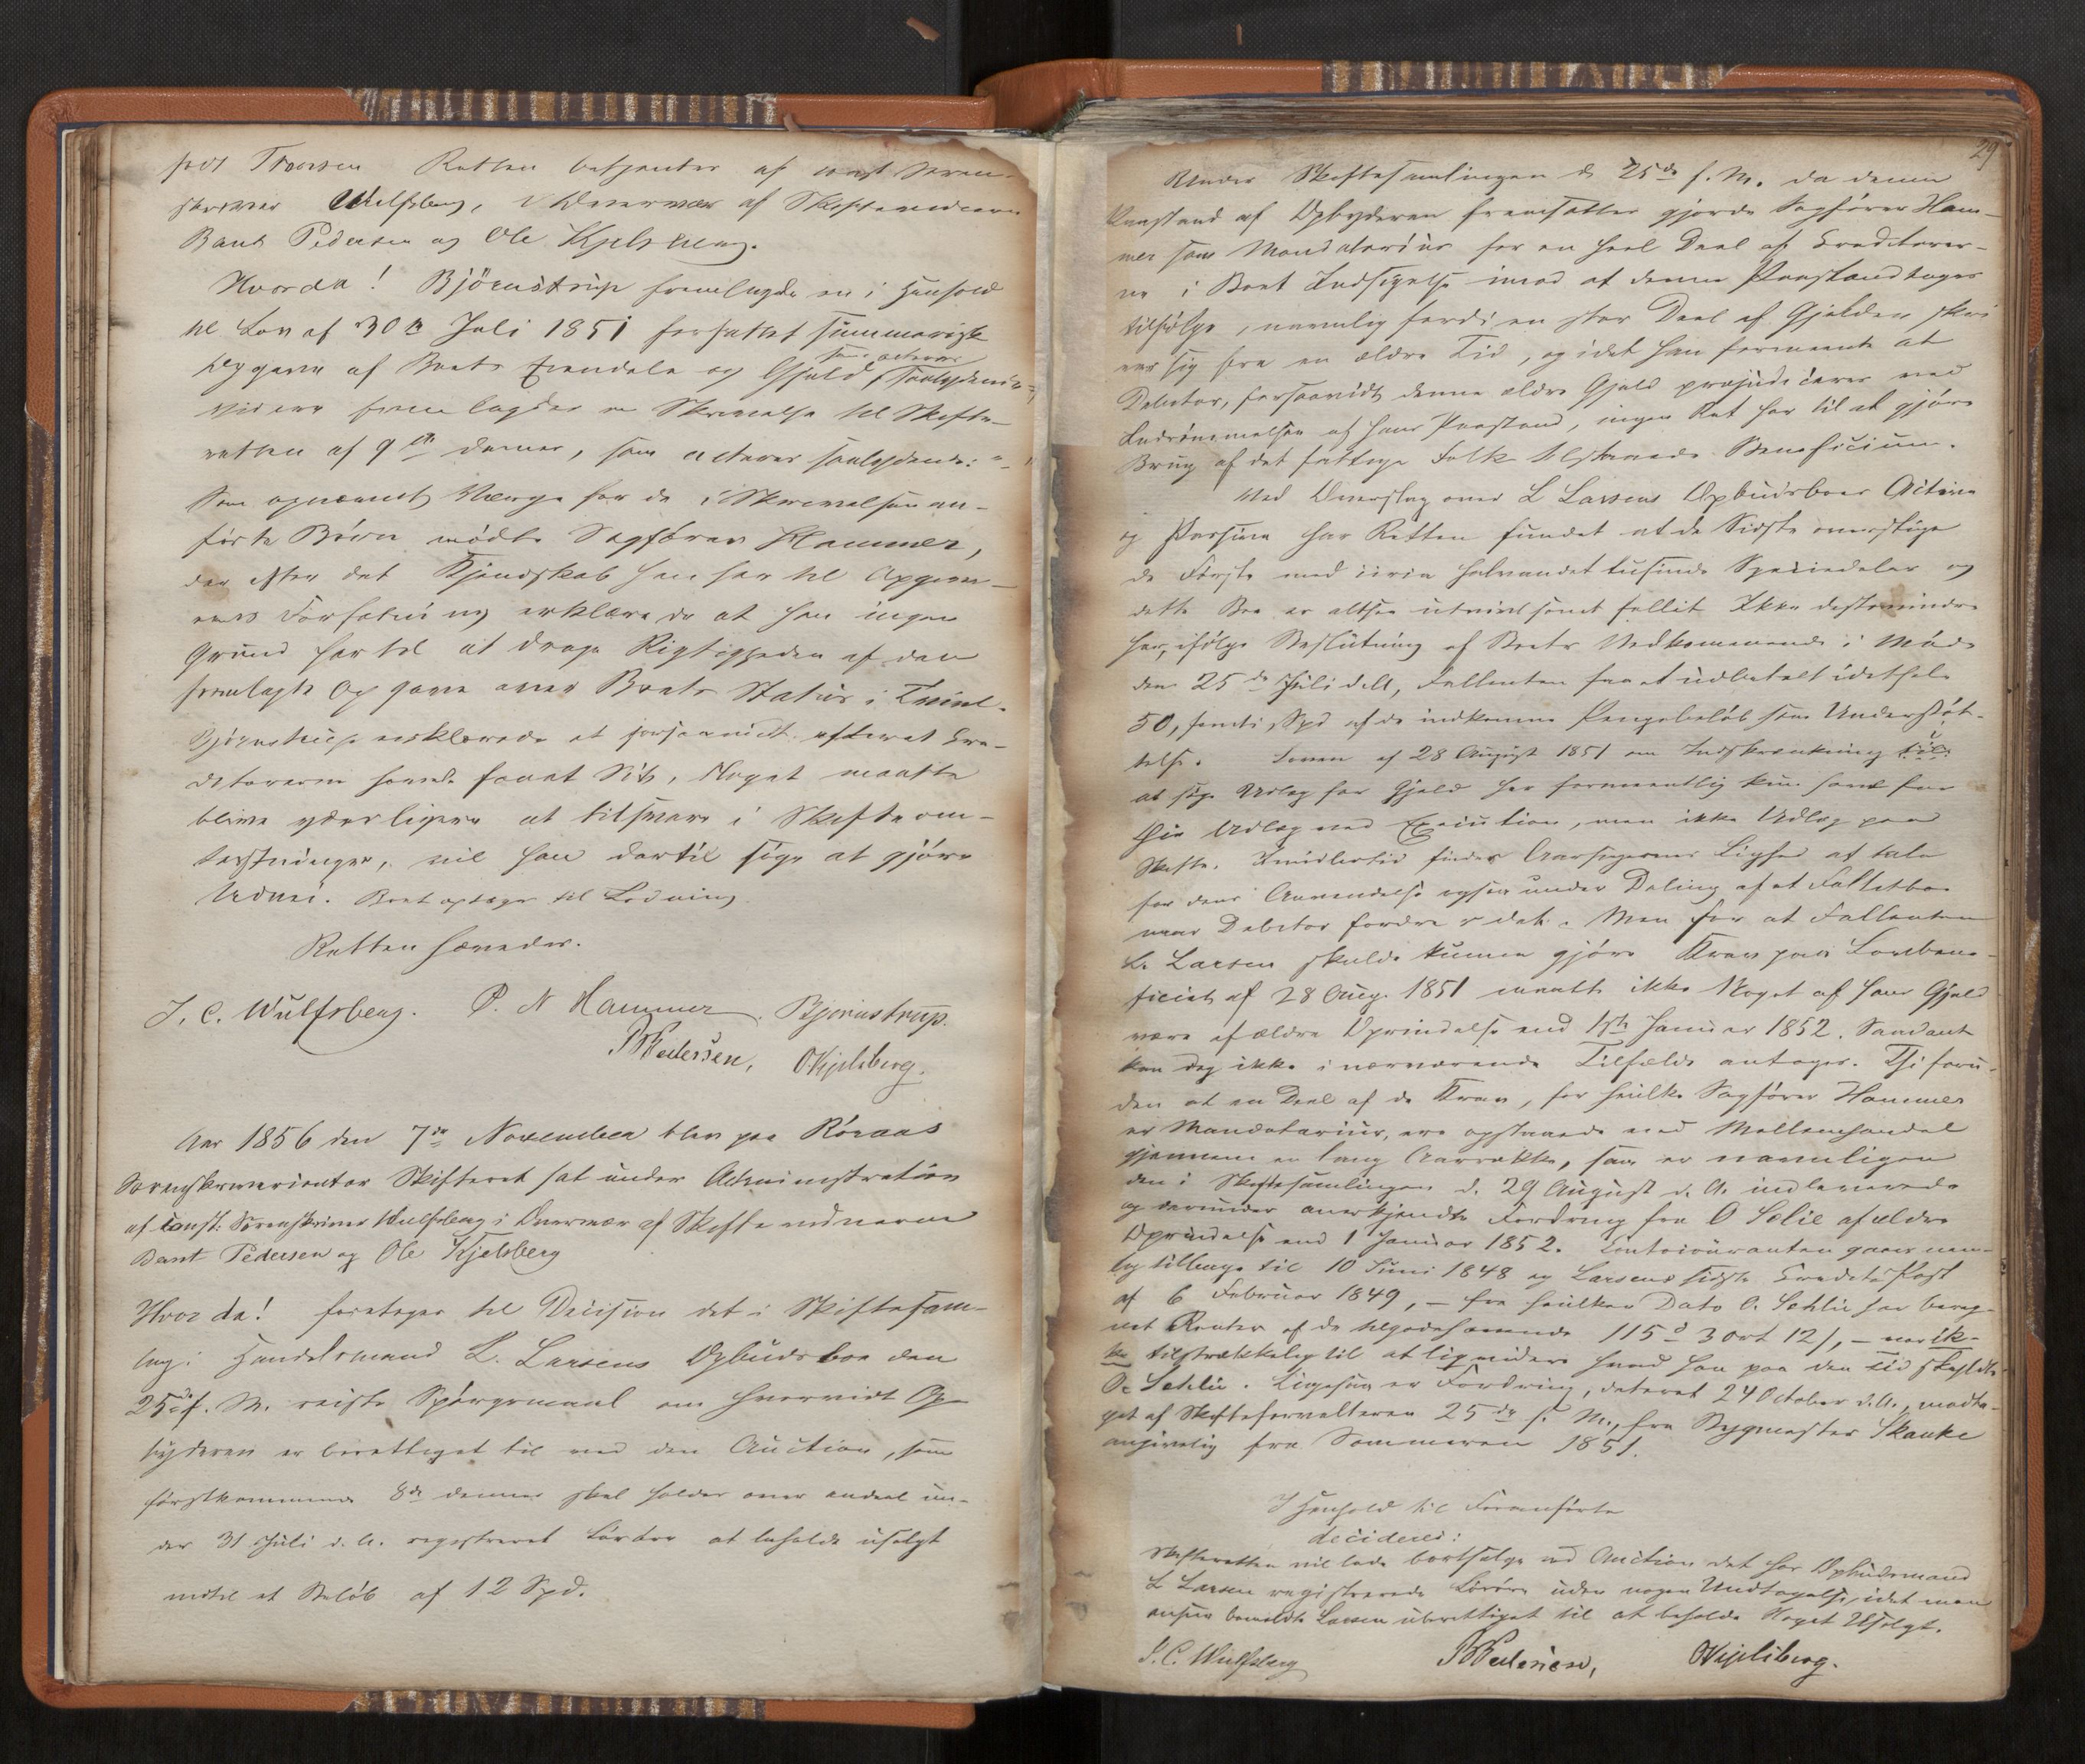 Thoresen Retten betjentes af const Soren-
skriver Wulfsberg, i Overvær af Skiftevidnerne
Bant Pedersen og Ole Kjelsberg.
Hvorda! Björnstrup fremlagde en i Henhold
til Lov af 30te Juli 1851 forfattet summarisk
Opgave af Boets Eiendele og Gjeld, som acteres saalydende
Videre fremlagdes en Skrivelse til Skifte-
retten af 9de dennes, som acteres saalydende: "-"
Som opnævnt Værge for de i Skrivelsen an-
förte Börn mödte Sagförer Hammer,
der efter det Kjendskab han har til Opgive-
rens Forfatning erklærede at han ingen
Grund har til at drage Rigtigheden af den
fremlagte Opgave over Boets Status i Tvivl.
Björnstrup erklærede at forsaavidt efterat Cre-
ditorerne havde faaet Sit, Noget maatte
blive yderligere at tilsvare i Skifteom-
kostninger, vil han dertil sige at gjöre
Udvei. Boet optages til Lodning.
Retten hævedes.
J. C. Wulfsberg. P. N Hammer. Bjørnstrup.
BPedersen, OKjelsberg.
Aar 1856 den 7de November blev paa Röraas
Sorenskrivercontor Skifteret sat under Administration
af const. Sorenskriver Wulfsberg i Overvær af Skiftevidnerne
Bant Pedersen og Ole Kjelsberg
Hvor da! foretages til Decision det i Skiftesam-
ling i Handelsmand L. Larsens Opbudsboe den
25de f. M. reiste Spörgsmaal om hvorvidt Op-
byderen er berettiget til ved den Auction, som
förstkommende 8de dennes skal holdes over endeel un-
der 31 Juli d. A. registreret Lösöre at beholde usolgt
indtil et Belöb af 12 Spd.
29
Under Skiftesamlingen d 25de f. M. da denne
Paastand af Opbyderen fremsattes gjorde Sagförer Ham-
mer som Mandatarius for en heel Deel af Creditorer-
ne i Boet Indsigelse imod at denne Paastand toges
tilfölge, navnlig fordi en stor Deel af Gjelden skri
ver sig fra en ældre Tid, og idet han formeente at
Debitor, forsaavidt denne ældre Gjeld præjudiceres ved
Indrömmelsen af hans Paastand, ingen Ret har til at gjöre
Brug af det fattige Folk tilstaaede Beneficium.
Ved Overslag over L Larsens Opbudsboes Activa
og Passiva har Retten fundet at de Sidste overstige
de Förste med circa halvandet tusinde Speciedaler og
dette Boe er altsaa utvivlsomt fallit. Ikke destomindre
har, ifölge Beslutning af Boets Vedkommende i Möde
den 25de Juli d A, Fallenten faaet udbetalt idethele
50, femti, Spd af de indkomne Pengebelöb som Understöt-
telse. Loven af 28 August 1851 om Indskrænkning til
at søge Udlæg for Gjeld har formeentlig kun havt for
Öie Udlæg ved Execution, men ikke Udlæg paa
Skifte. Imidlertid findes Aarsagernes Lighed at tale
for dens Anvendelse ogsaa under Deling af et Fallitboe
naar Debitor fordrer det. Men for at Fallenten
L. Larsen skulde kunne gjöre Krav paa Lovbene-
ficiet af 28 Aug. 1851 maatte ikke Noget af hans Gjeld
være af ældre Oprindelse end 1ste Januar 1852. Saadant
kan dog ikke i nærværende Tilfælde antages. Thi foru-
den at en Deel af de Krav, for hvilke Sagförer Hammer
er Mandatarius, ere opstaaede ved Mellemhandel
gjennem en lang Aarrække, saa er navnligen
den i Skiftesamlingen d. 29 August d. A. indleverede
og derunder anerkjendte Fordring fra O Sehlie af ældre
Oprindelse end 1 Januar 1852. Contocouranten gaaer nem-
lig tilbage til 10 Juni 1848 og Larsens sidste Credit-Post
af 6 Februar 1849, - fra hvilken Dato O. Sehlie har bereg-
net Renter af de tilgodehavende 115d 3 ort 12 s, - var ik-
ke tilstrækkelig til at liqvidere hvad han paa den Tid skyldte
O. Sehlie. Ligesaa er Fordring, dateret 24 October d. A., modta-
get af Skifteforvalteren 25de f. M., fra Bygmester Skanke
angivelig fra Sommeren 1851.
I Henhold til Foranførte
decideres:
Skifteretten vil lade bortsælge ved Auction det hos Opbudsmand
L Larsen registrerede Lösöre uden nogen Undtagelse, idet man
anseer bemeldte Larsen uberettiget til at beholde Noget Usolgt.
J. C. Wulfsberg BPedersen, OKjelsberg.